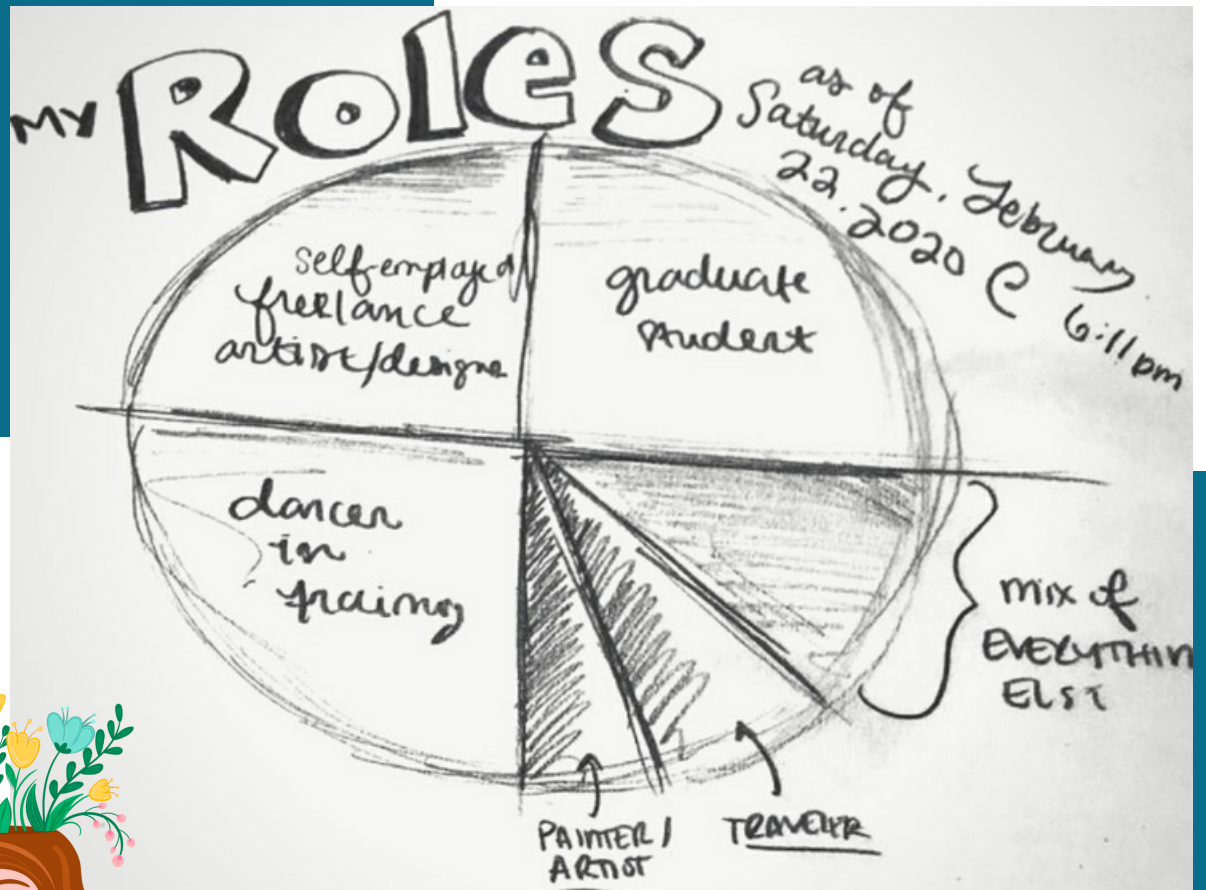 MY ROLES
as of
Saturday, February
22. 2020 @ 6:11 pm
self-employed/
freelance
artist/designer
graduate
student
dancer
in
training
mix of
EVERYTHIN
ELSE
PAINTER/
ARTIST
TRAVELER